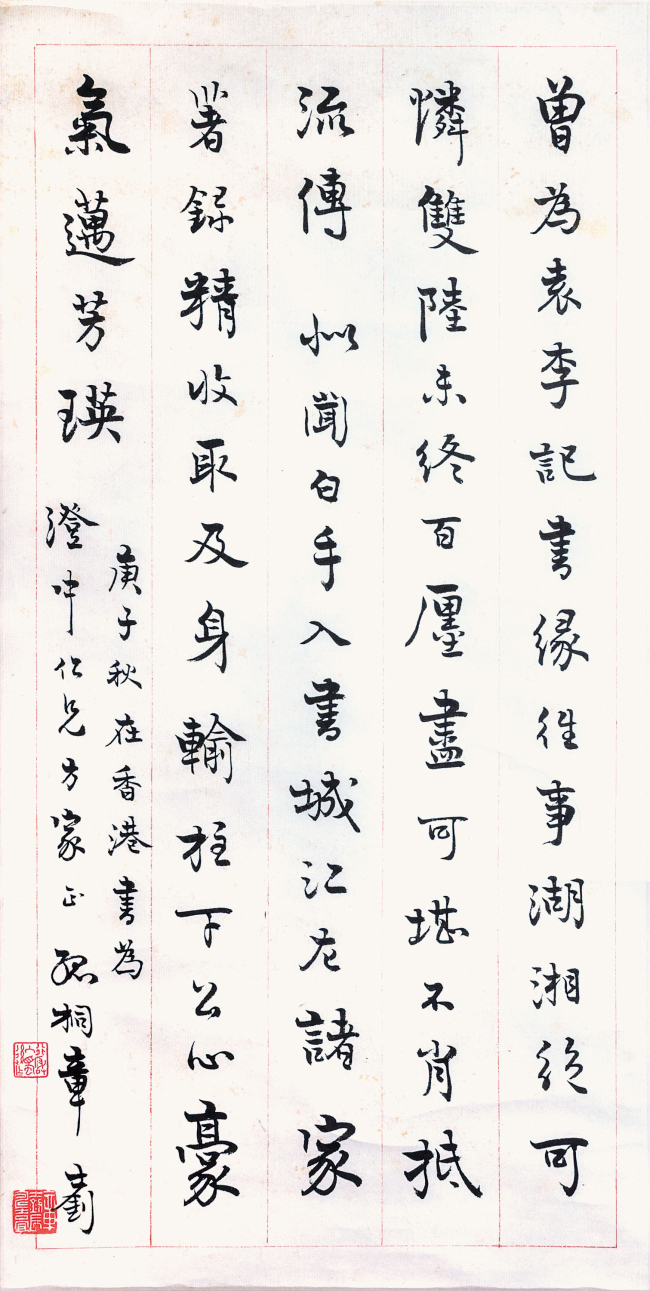 曾為袁李記書緣往事湖湘絶可
憐雙陸未終百廛盡可堪不肖抵
流傳 似聞白手入書城江左諸家
著録精收取及身輸柱下公心豪
氣邁芳瑛
庚子秋在香港書為
澄中仁兄方家正 孤桐章士釗